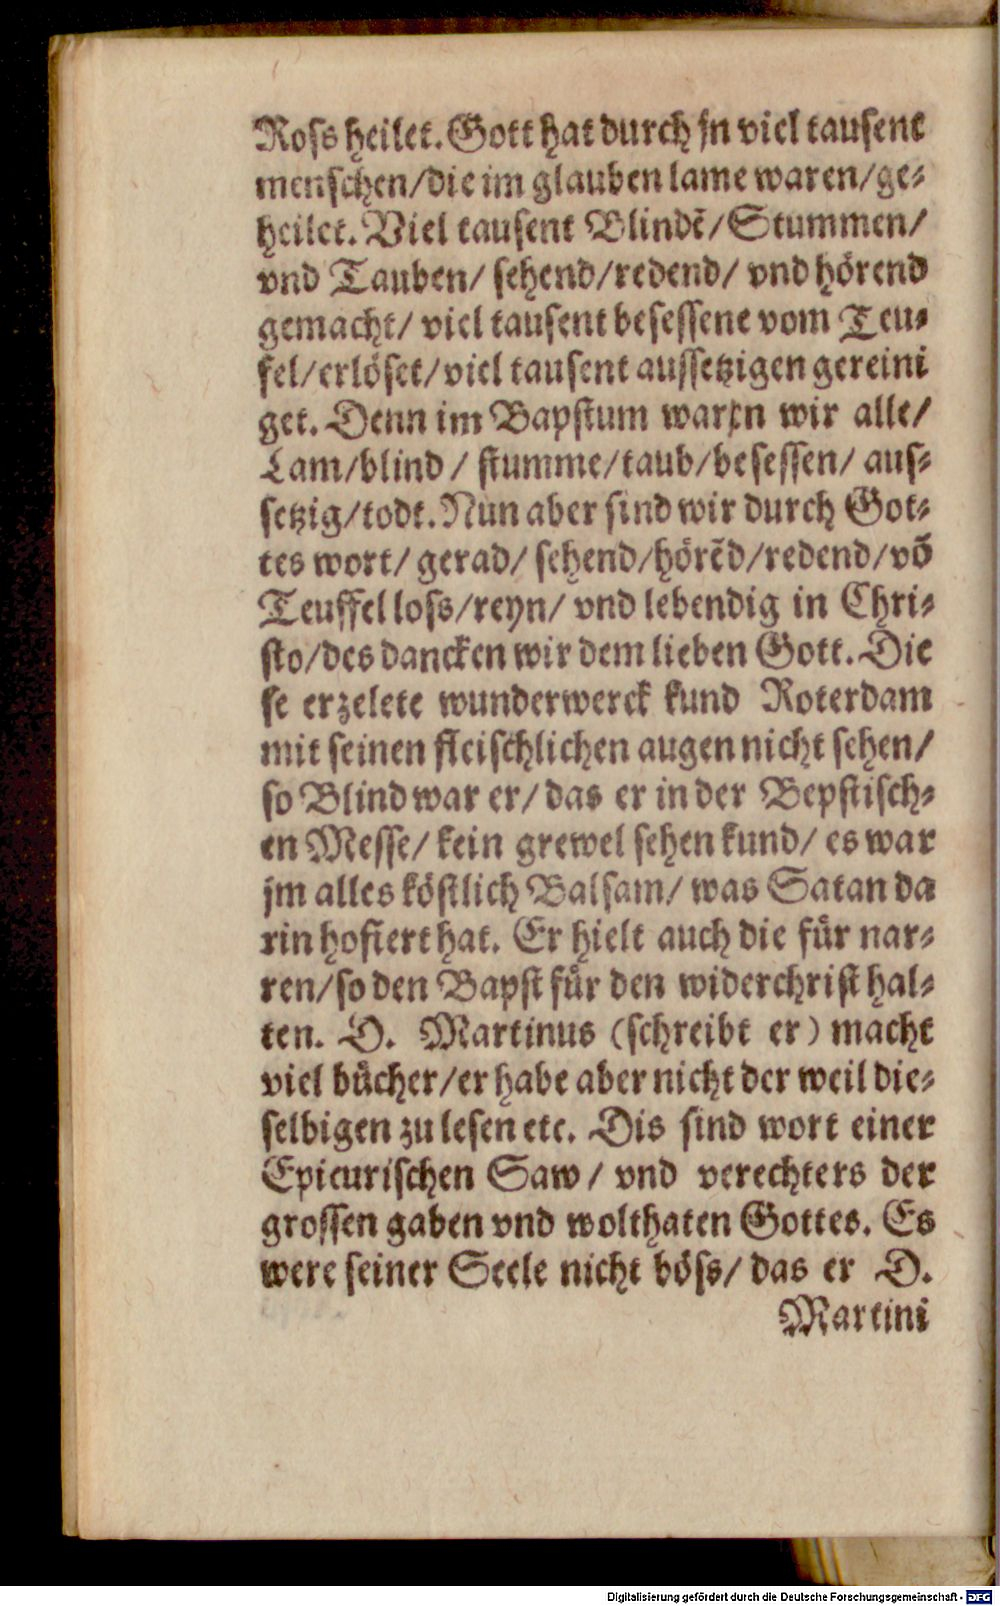 Ross heilet. Gott hat durch jn viel tausent
menschen/die im glauben lame waren/ge-
heilet. Viel tausent Blindẽ/Stummen/
vnd Tauben/ sehend/redend/ vnd hörend
gemacht/ viel tausent besessene vom Teu-
fel/erlöset/viel tausent aussetzigen gereini
get. Denn im Bapstum waren wir alle/
Lam/blind / stumme/taub/besessen/ aus-
setzig/todt. Nun aber sind wir durch Got-
tes wort/ gerad/ sehend/hörẽd/redend/võ
Teuffel loss/reyn/ vnd lebendig in Chri-
sto/des dancken wir dem lieben Gott. Die
se erzelete wunderwerck kund Roterdam
mit seinen fleischlichen augen nicht sehen/
so Blind war er/ das er in der Bepstisch-
en Messe/ kein grewel sehen kund/ es war
jm alles köstlich Balsam/ was Satan da
rin hofiert hat. Er hielt auch die für nar-
ren/so den Bapst für den widerchrist hal-
ten. D. Martinus (schreibt er) macht
viel bücher/er habe aber nicht der weil die-
selbigen zu lesen etc. Dis sind wort einer
Epicurischen Saw/ vnd verechters der
grossen gaben vnd wolthaten Gottes. Es
were seiner Seele nicht böss/ das er D.
Martini
Digitalisierung gefördert durch die Deutsche Forschungsgemeinschaft - DFG